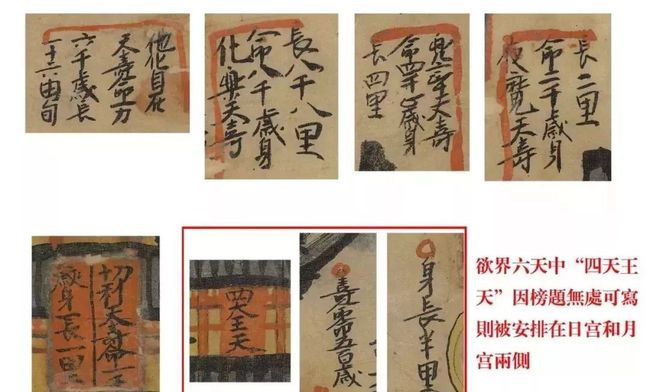 他化自在
天壽命万
六千歲長
一十六由旬
化樂天壽
命八千歲身
長八千八里
兜率天壽
命四千歲身
長四里
夜魔天壽
命二千歲身
長二里
忉利天壽命一
歲身長一里
四天王天
壽命五百歲
身長半里
欲界六天中“四天王
天”因榜題無處可寫
則被安排在日宮和月
宮兩側